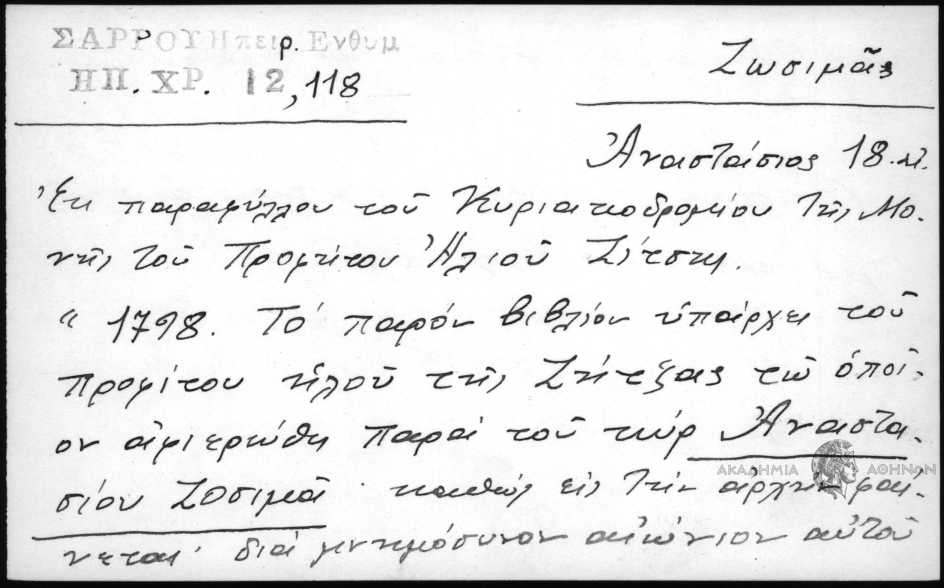 ΣΑΡΡΟΥ Ηπειρ. Ενθυμ
ΗΠ. ΧΡ. 12, 118
Ζωσιμᾶς
Ἀναστάσιος 18. αἰ.
Ἐκ παραφύλλου τοῦ Κυριακοδρομίου τῆς Μο-
νῆς τοῦ Προφήτου Ἠλιοῦ Ζίτσης.
“ 1798. Τὸ παρόν βιβλίον ὑπάρχει τοῦ
προφίτου ἠλοῦ τῆς Ζήτξας τῶ ὁποῖ-
ον ἀφιερώθη παρά τοῦ κύρ Ἀναστα-
σίου Ζοσιμᾶ καθώς εἰς τήν ἀρχήν φαί-
νεται· διά μνημόσυνον αἰώνιον αὐτοῦ
ΑΚΑΔΗΜΙΑ ΑΘΗΝΩΝ